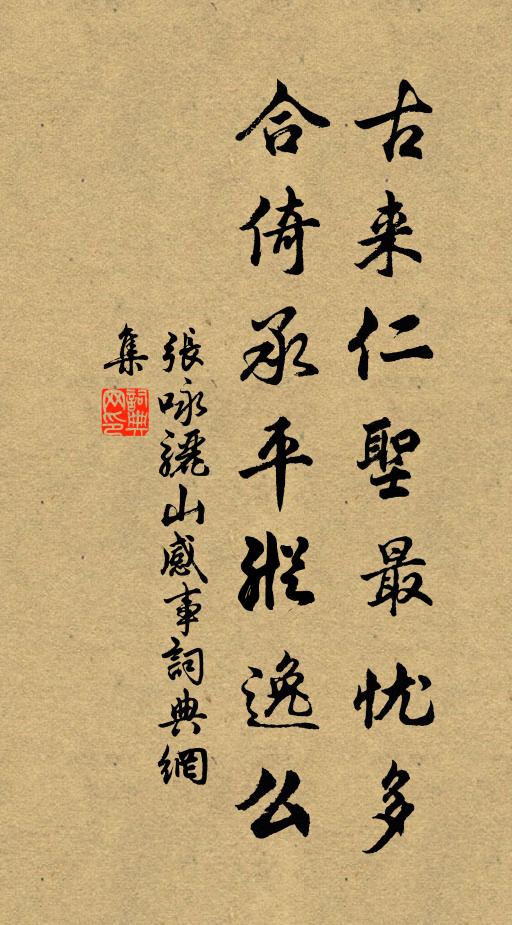 古来仁聖最忧多
合倚承平縱逸么
張咏驪山感事詞典網
集
詞典
网印